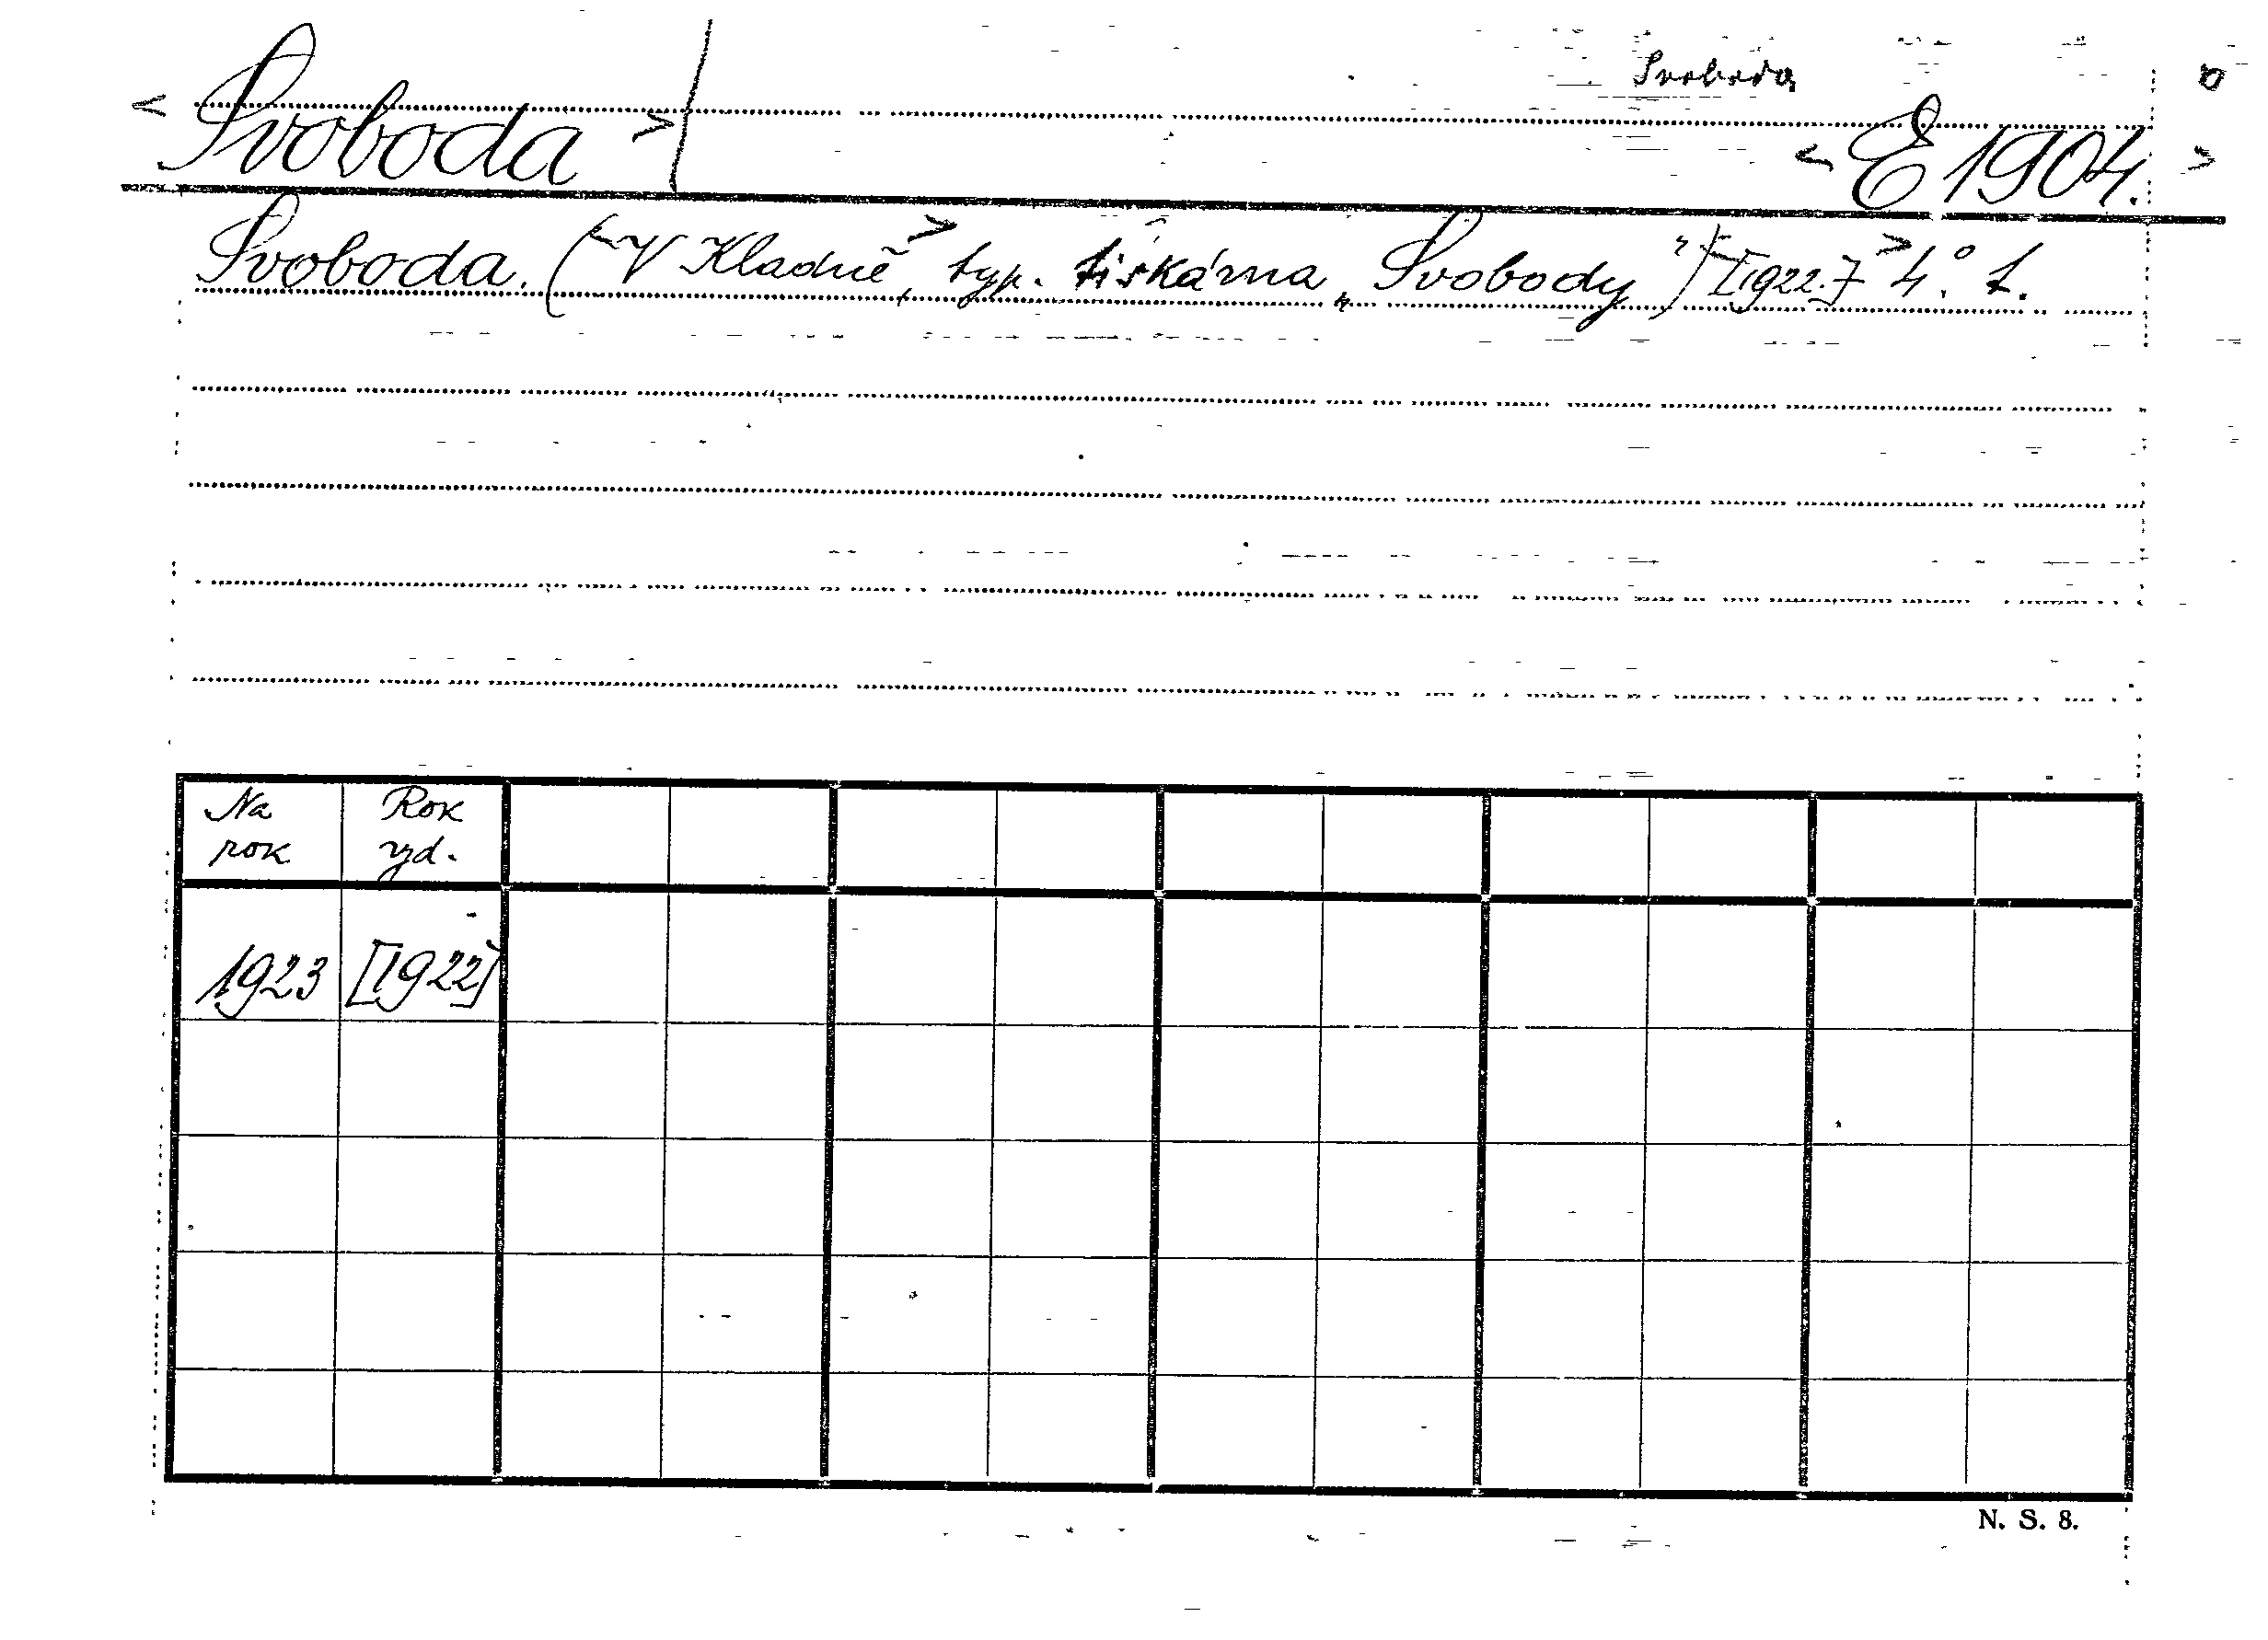 Svoboda
< Svoboda > / < E 1904. >
Svoboda. (<V Kladně>, typ. tiskárna „Svobody") <[1922.]> 4°. 1.
Na rok Rok vyd.
1923 [1922]
N. S. 8.